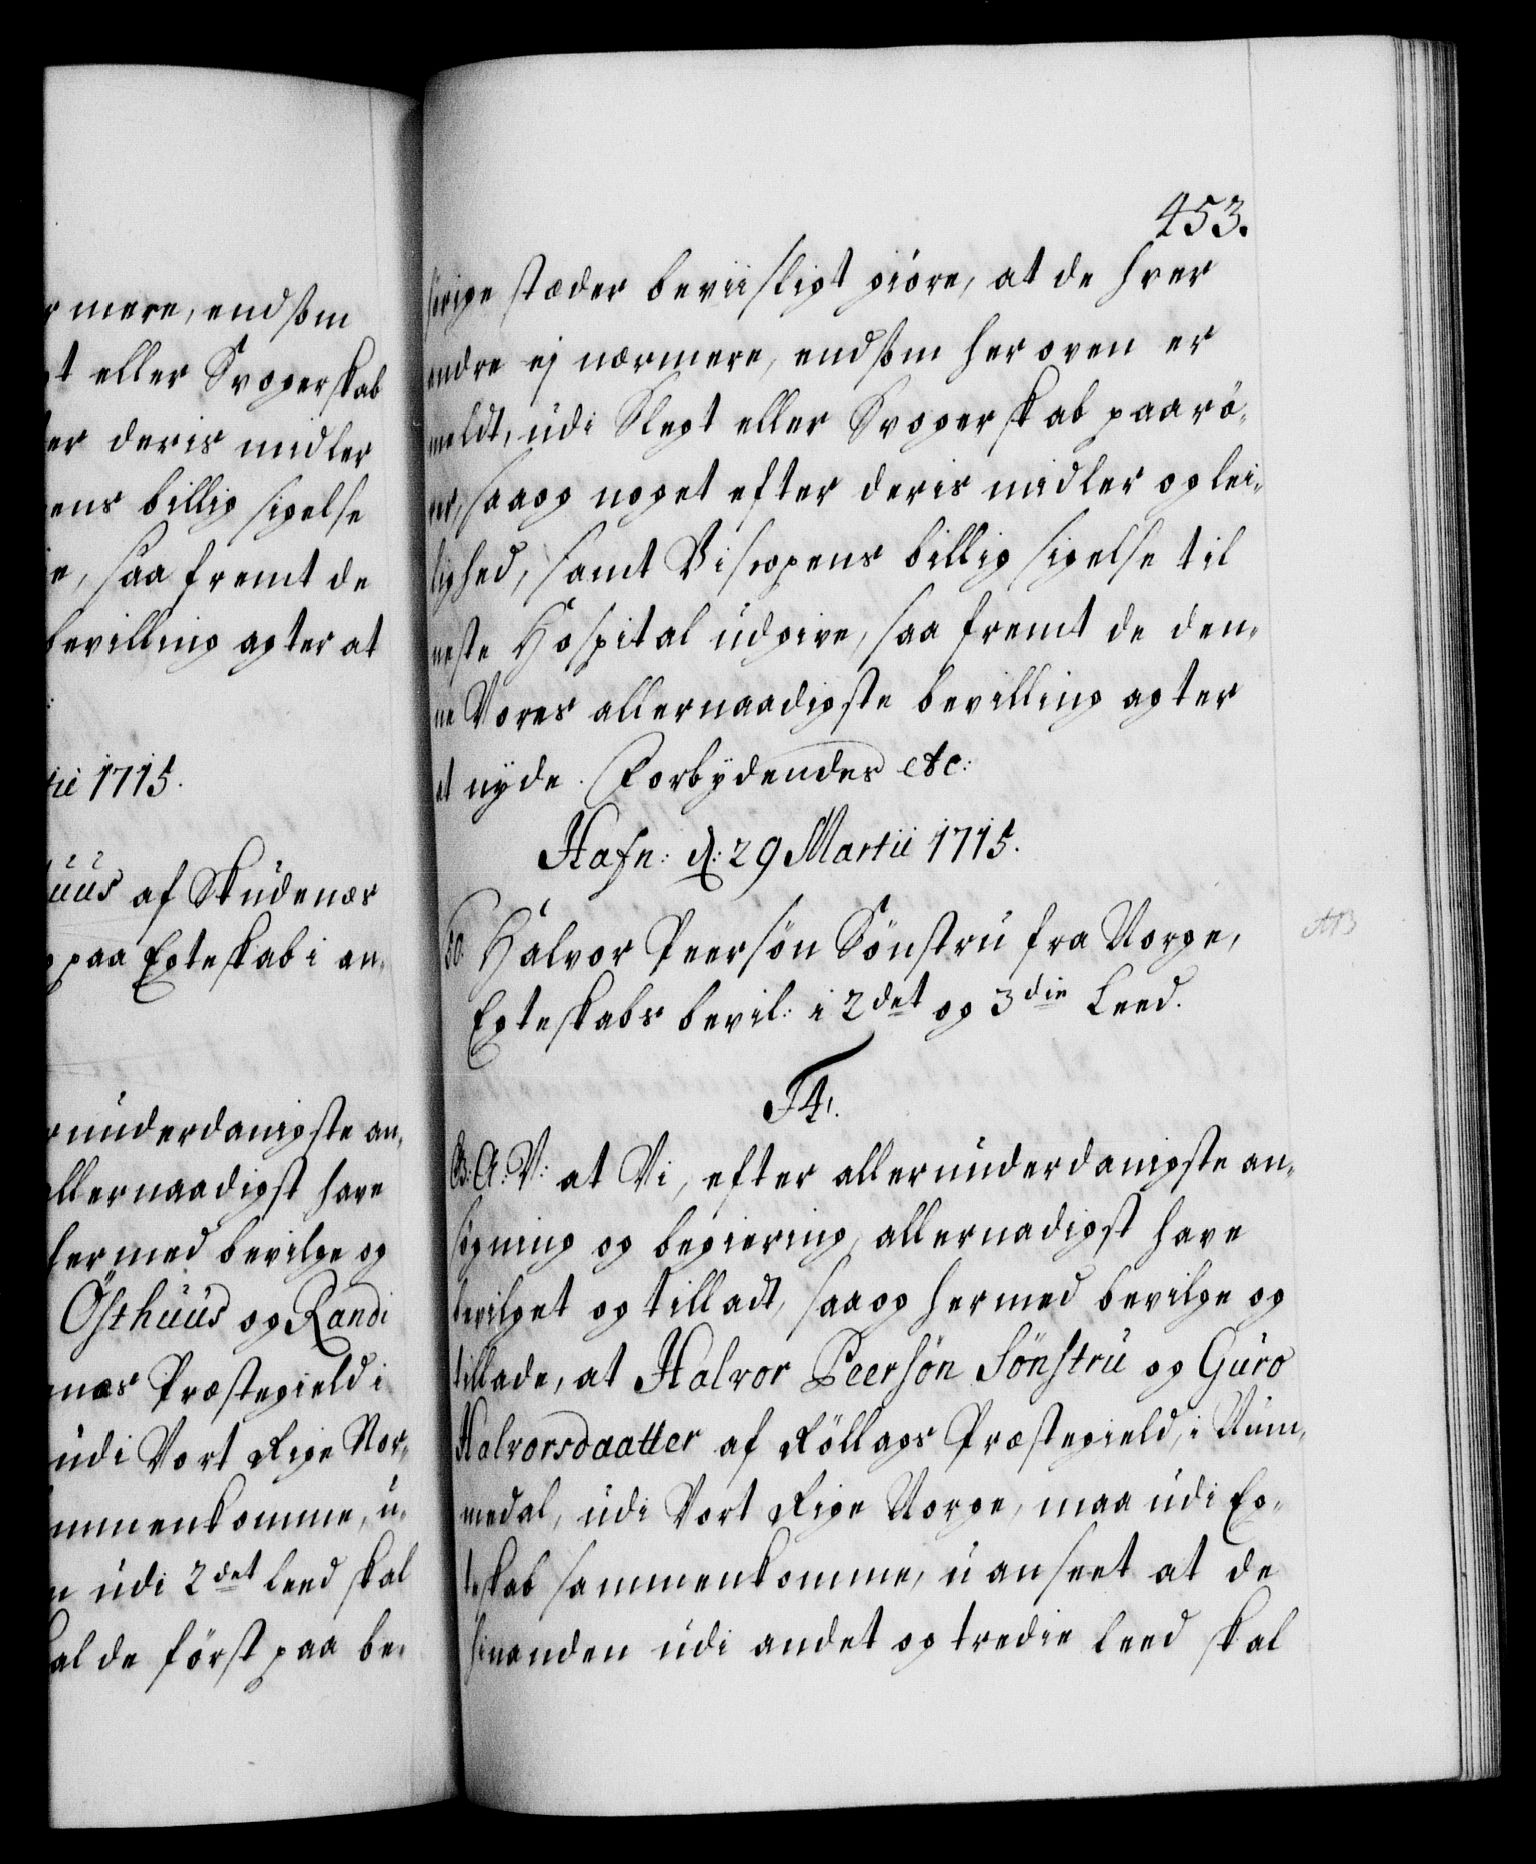 r mere, end som
gt eller Svogerskab
ter deris midler
ens billig sigelse
e, saa fremt de
bevilling agter at
tii 1715.
huus af Skudenæs
paa Egteskab i an-
underdanigste an-
allernaadigst have
hermed bevilge og
Østhuus og Randi
næs Præstegield i
udi Vort Rige Nor-
mmenkomme, u-
n udi 2det Leed skal
al de först paa be-
453.
hörige stæder beviisligt giöre, at de hver
andre ej nærmere, end som her oven er
meldt, udi Slegt eller Svogerskab paarö-
rer, saa og noget efter deris midler og lei-
lighed, samt Biscopens billig sigelse til
neste Hospital udgive, saa fremt de den-
ne Vores allernaadigste bevilling agter
at nyde. Forbydendes etc:
Hafn: d: 29 Martii 1715.
50. Halvor Peersön Sönstru fra Norge,
Egteskabs bevil: i 2det og 3die Leed.
F4.
G. A: V: at Vi, efter allerunderdanigste an-
sögning og begiering, allernadigst have
bevilget og tilladt, saa og hermed bevilge og
tillade, at Halvor Peersön Sönstru og Guro
Halvorsdaatter af Röllags Præstegield, i Num-
medal, udi Vort Rige Norge, maa udi Eg-
teskab sammenkomme, uanseet at de
hinanden udi andet og tredie Leed skal